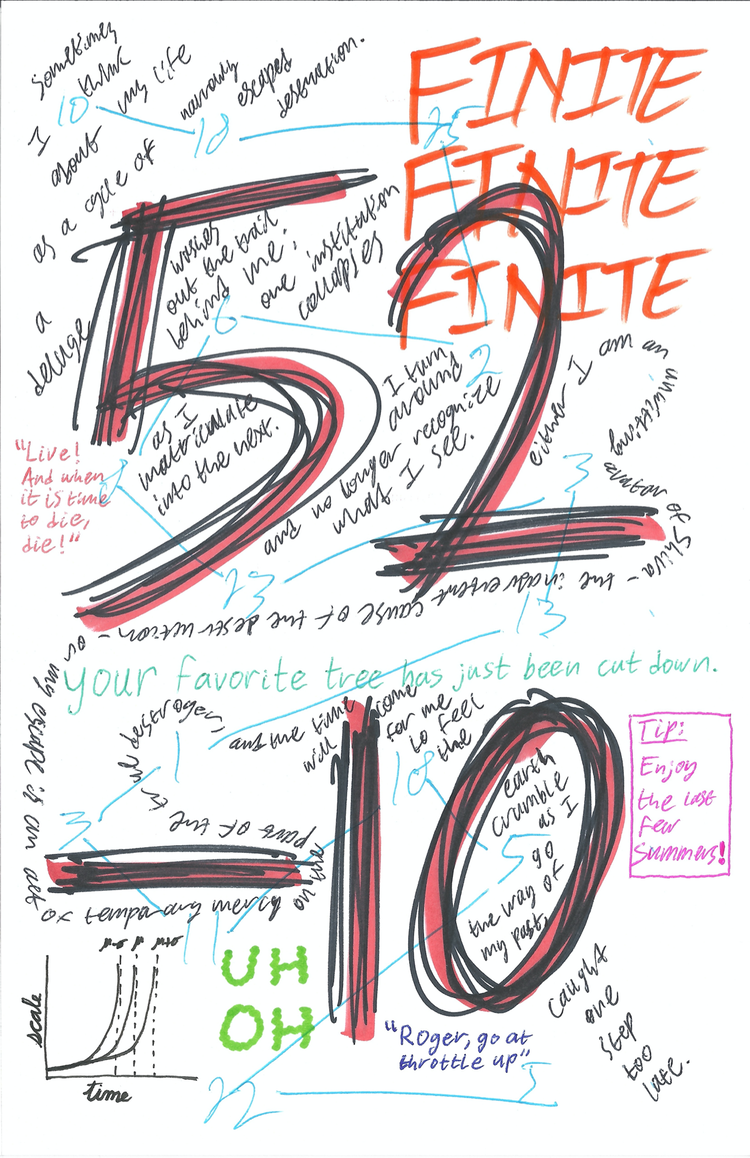 sometimes
I think
about my life
as a cycle of
narrowly
escaped
destruction.
10
18
25
FINITE
FINITE
FINITE
52
a
deluge
washes
out the trail
behind me;
one institution
collapses
6
2
as I
matriculate
into the next.
I turn
around
and no longer recognize
what I see.
either I am an
unwitting
avatar of
Shiva – the inadvertent cause of the destruction – or
my escape is an act
of temporary mercy
on the
part of the
destroyer,
and the time
will come
for me
to feel
the
earth
crumble
as I
go
the way of
my past,
caught
one
step
too
late.
"Live!
And when
it is time
to die,
die!"
8
3
23
13
your favorite tree has just been cut down.
-10
1
3
18
5
11
22
Tip:
Enjoy
the last
few
summers!
scale
time
μ-σ μ μ+σ
UH
OH
"Roger, go at
throttle up"